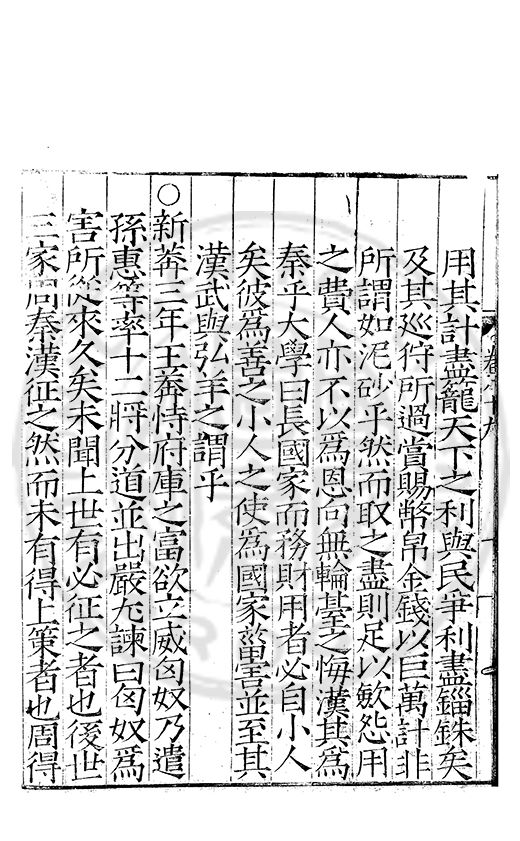 用其計盡籠天下之利與民爭利盡錙銖矣
及其廵狩所過賞賜幣帛金錢以巨萬計非
所謂如泥砂乎然而取之盡則足以歛怨用
之費人亦不以爲恩向無輪臺之悔漢其爲
秦乎大學曰長國家而務財用者必自小人
矣彼爲善之小人之使爲國家葘害並至其
漢武與弘羊之謂乎
○新莽三年王莽恃府庫之富欲立威匈奴乃遣
孫惠等率十二將分道並出嚴尤諫曰匈奴爲
害所從來久矣未聞上世有必征之者也後世
三家周秦漢征之然而未有得上策者也周得